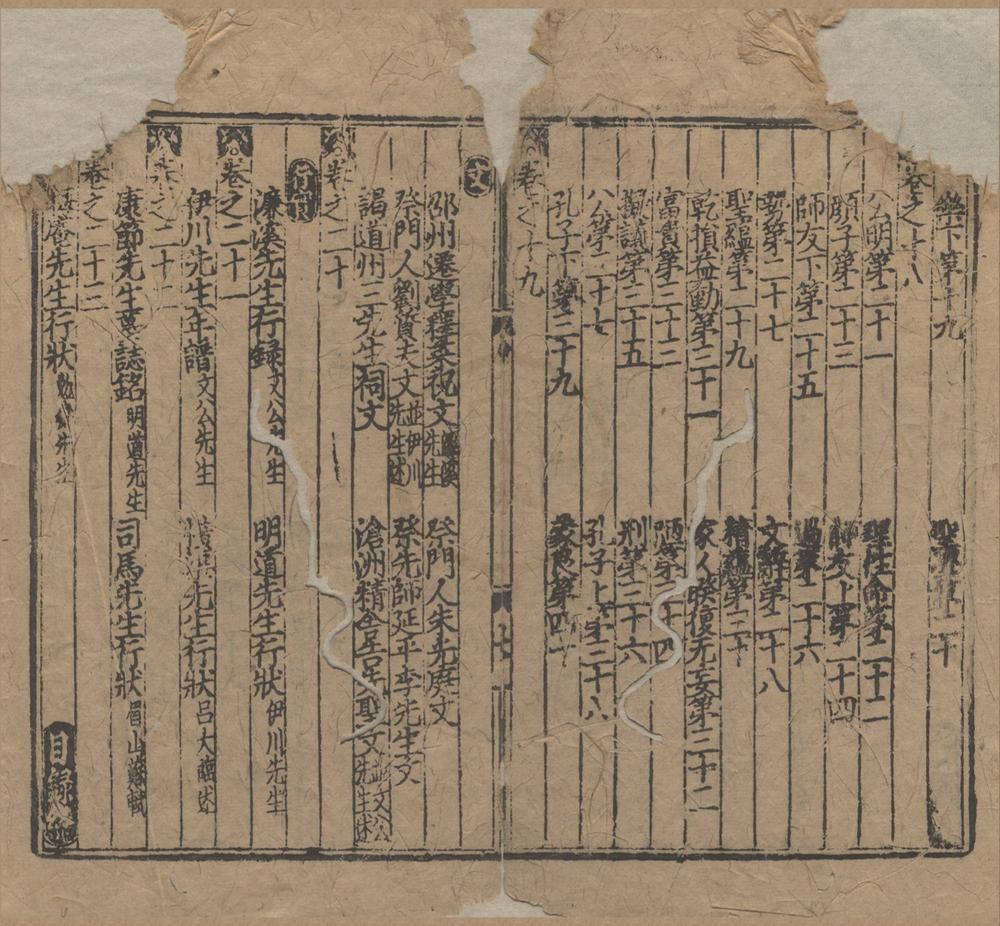 樂下第十九　聖蘊第二十
卷之十八
公明第二十一　理性命第二十二
顏子第二十三　師友上第二十四
師友下第二十五　過第二十六
勢第二十七　文辭第二十八
聖蘊第二十九　精蘊第三十
乾損益動第三十一　家人睽復无妄第三十二
富貴第三十三　陋第三十四
擬議第三十五　刑第三十六
公第三十七　孔子上第三十八
孔子下第三十九　蒙艮第四十
卷之十九
文
邵州遷學釋菜祝文濂溪先生　祭門人朱光庭文
祭門人劉質夫文並伊川先生述　祭先師延平李先生文
謁道州三先生祠文　滄洲精舍告先聖文並文公先生述
卷之二十
行實
濂溪先生行錄文公先生　明道先生行狀伊川先生
卷之二十一
伊川先生年譜文公先生　橫渠先生行狀呂大臨述
卷之二十二
康節先生墓誌銘明道先生　司馬先生行狀眉山蘇軾
卷之二十三
晦庵先生行狀勉齋先生
目錄